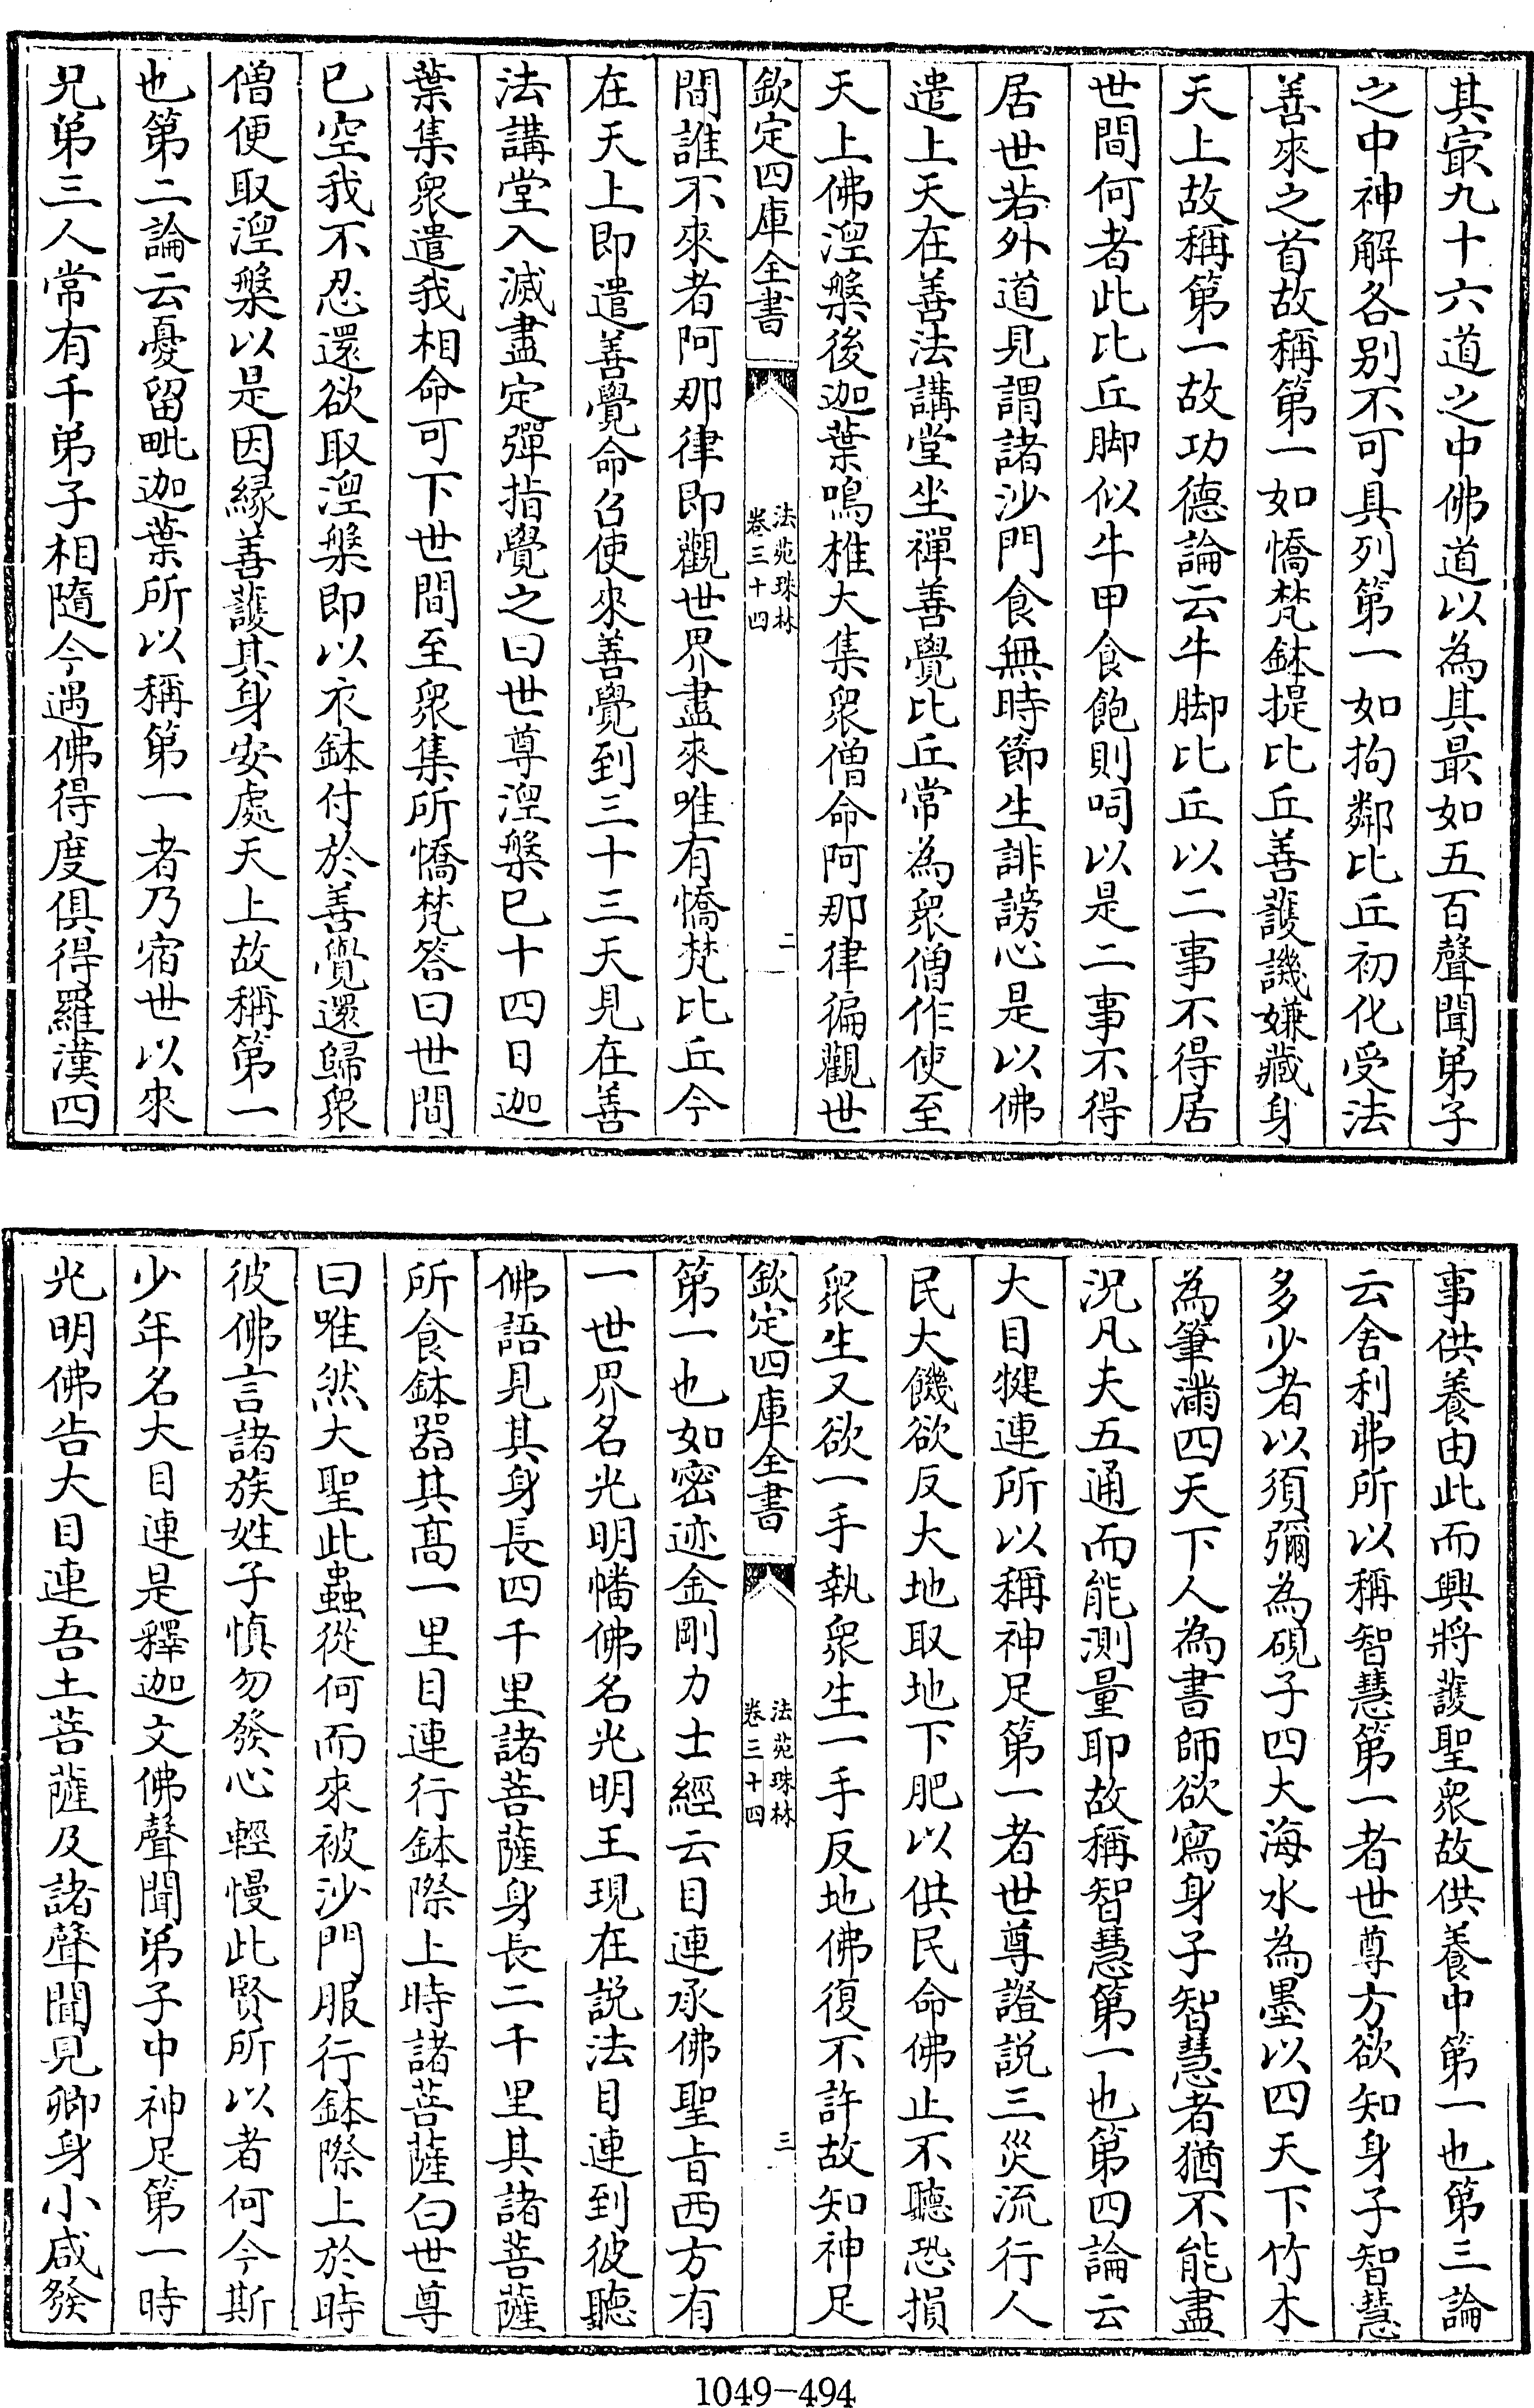 其㝡九十六道之中佛道以為其最如五百聲聞弟子
之中神解各别不可具列第一如拘鄰比丘初化受法
善來之首故稱第一如憍梵鉢提比丘善護譏嫌藏身
天上故稱第一故功德論云牛脚比丘以二事不得居
世間何者此比丘脚似牛甲食飽則呞以是二事不得
居世若外道見謂諸沙門食無時節生誹謗心是以佛
遣上天在善法講堂坐禪善覺比丘常為衆僧作使至
天上佛湼槃後迦葉鳴椎大集衆僧命阿那律徧觀世
欽定四庫全書
法苑珠林
卷三十四
二
間誰不來者阿那律即觀世界盡來唯有憍梵比丘今
在天上即遣善覺命召使來善覺到三十三天見在善
法講堂入滅盡定彈指覺之曰世尊湼槃已十四日迦
葉集衆遣我相命可下世間至衆集所憍梵答曰世間
已空我不忍還欲取湼槃即以衣鉢付於善覺還歸衆
僧便取湼槃以是因緣善護其身安處天上故稱第一
也第二論云憂留毗迦葉所以稱第一者乃宿世以來
兄弟三人常有千弟子相隨今遇佛得度俱得羅漢四
事供養由此而興將護聖衆故供養中第一也第三論
云舍利弗所以稱智慧第一者世尊方欲知身子智慧
多少者以須彌為硯子四大海水為墨以四天下竹木
為筆滿四天下人為書師欲寫身子智慧者猶不能盡
況凡夫五通而能測量耶故稱智慧第一也第四論云
大目犍連所以稱神足第一者世尊證説三災流行人
民大饑欲反大地取地下肥以供民命佛止不聽恐損
衆生又欲一手執衆生一手反地佛復不許故知神足
欽定四庫全書
法苑珠林
卷三十四
三
第一也如密迹金剛力士經云目連承佛聖旨西方有
一世界名光明幡佛名光明王現在説法目連到彼聽
佛語見其身長四千里諸菩薩身長二千里其諸菩薩
所食鉢器其高一里目連行鉢際上時諸菩薩白世尊
曰唯然大聖此蟲從何而來被沙門服行鉢際上於時
彼佛言諸族姓子慎勿發心輕慢此賢所以者何今斯
少年名大目連是釋迦文佛聲聞弟子中神足第一時
光明佛告大目連吾土菩薩及諸聲聞見卿身小咸發
1049-494